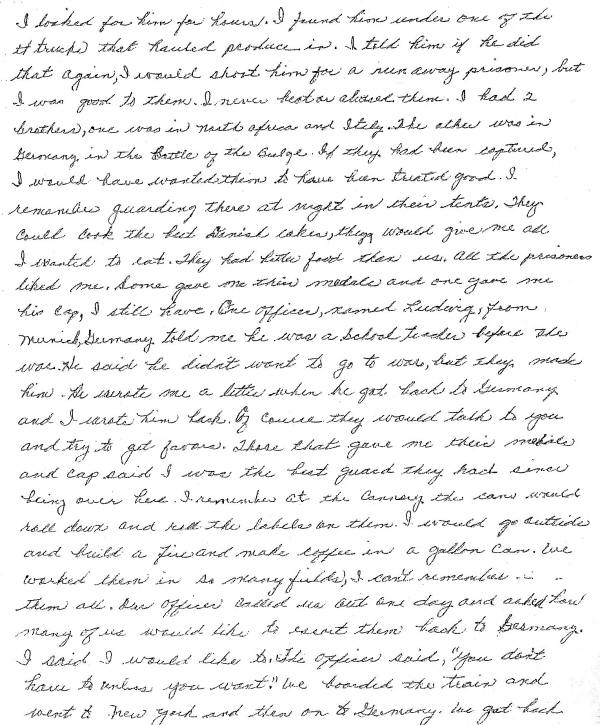 I looked for him for hours. I found him under one of the
trucks that hauled produce in. I told him if he did
that again, I would shoot him for a run away prisoner, but
I was good to them. I never beat or abused them. I had 2
brothers, one was in north africa and Italy. The other was in
Germany in the Battle of the Bulge. If they had been captured,
I would have wanted them to have been treated good. I
remember guarding there at night in their tents. They
could cook the best Danish cakes, they would give me all
I wanted to eat. They had better food than us. All the prisoners
liked me. Some gave me their medals and one gave me
his cap, I still have. One officer, named Ludwig, from
Munich, Germany told me he was a School teacher before the
war. He said he didn't want to go to war, but they made
him. He wrote me a letter when he got back to Germany
and I wrote him back. Of course they would talk to you
and try to get favors. Those that gave me their medals
and cap said I was the best guard they had since
being over here. I remember at the cannery the cans would
roll down and roll the labels on them. I would go outside
and build a fire and make coffee in a gallon can. We
worked them in so many fields, I can't remember
them all. Our officer called us out one day and asked how
many of us would like to escort them back to Germany.
I said I would like to. The officer said, "you don't
have to unless you want." We boarded the train and
went to New York and then on to Germany. We got back